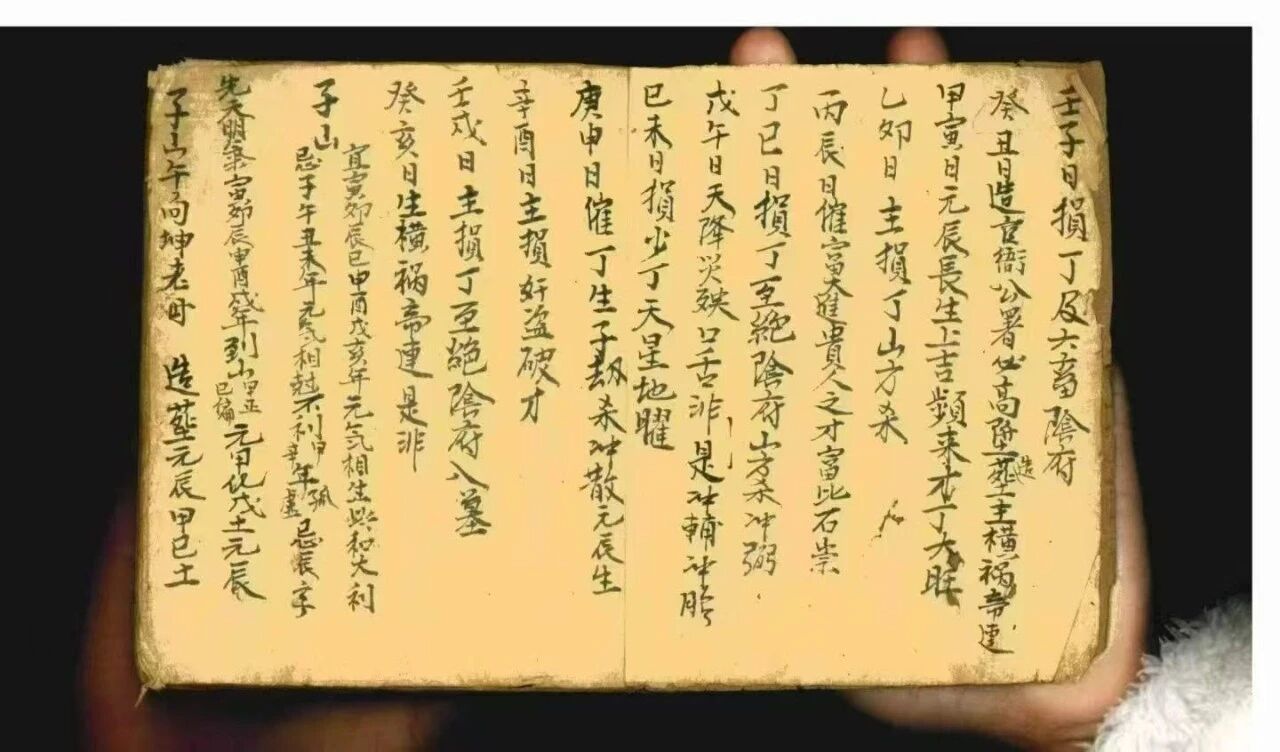 壬子日損丁及六畜陰府
癸丑日造官衙公署必高陞造葬主橫禍帝連
甲寅日元辰長生上吉頻来才丁大旺
乙夘日主損丁山方杀
丙辰日催富大進貴人之才富比石崇
丁巳日損丁至絶陰府山方杀冲弼
戊午日天降災殃口舌非是冲輔冲
巳未日損少丁天星地曜
庚申日催丁生子劫杀冲散元辰生
辛酉日主損奸盗破才
壬戌日主損丁至絶陰府入墓
癸亥日生橫禍帝連是非
子山
宜寅夘辰巳申酉戌亥年元気相生比和大利
忌子午丑未年元気相尅不利甲辛年孤虚忌辰字
先天明來寅夘辰申酉戌年到山甲正巳偏元甲化戊土元辰
子山午向坤老母 造葬元辰甲巳土